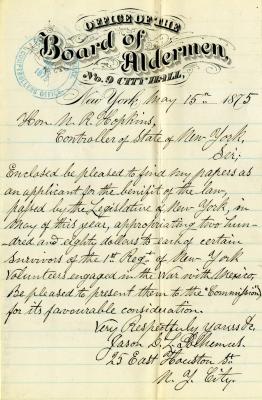 OFFICE OF THE
Board of Aldermen,
No. 9 CITY HALL,
New York, May 15th 1875
Hon N. R. Hopkins,
Controller of State of New York,
Sir;
Enclosed be pleased to find my papers as
an applicant for the benifit of the law,
passed by the Legislative of New York, in
May of this year, appropriating two hun-
dred and eighty dollars to each of certain
Survivors of the 1st Regt of New York
Volunteers engaged in the War with Mexico.
Be pleased to present them to the "Commission",
for its favourable consideration.
Very Respectfully yours &c.
Jason
25 East Houston St.
N. Y. City.